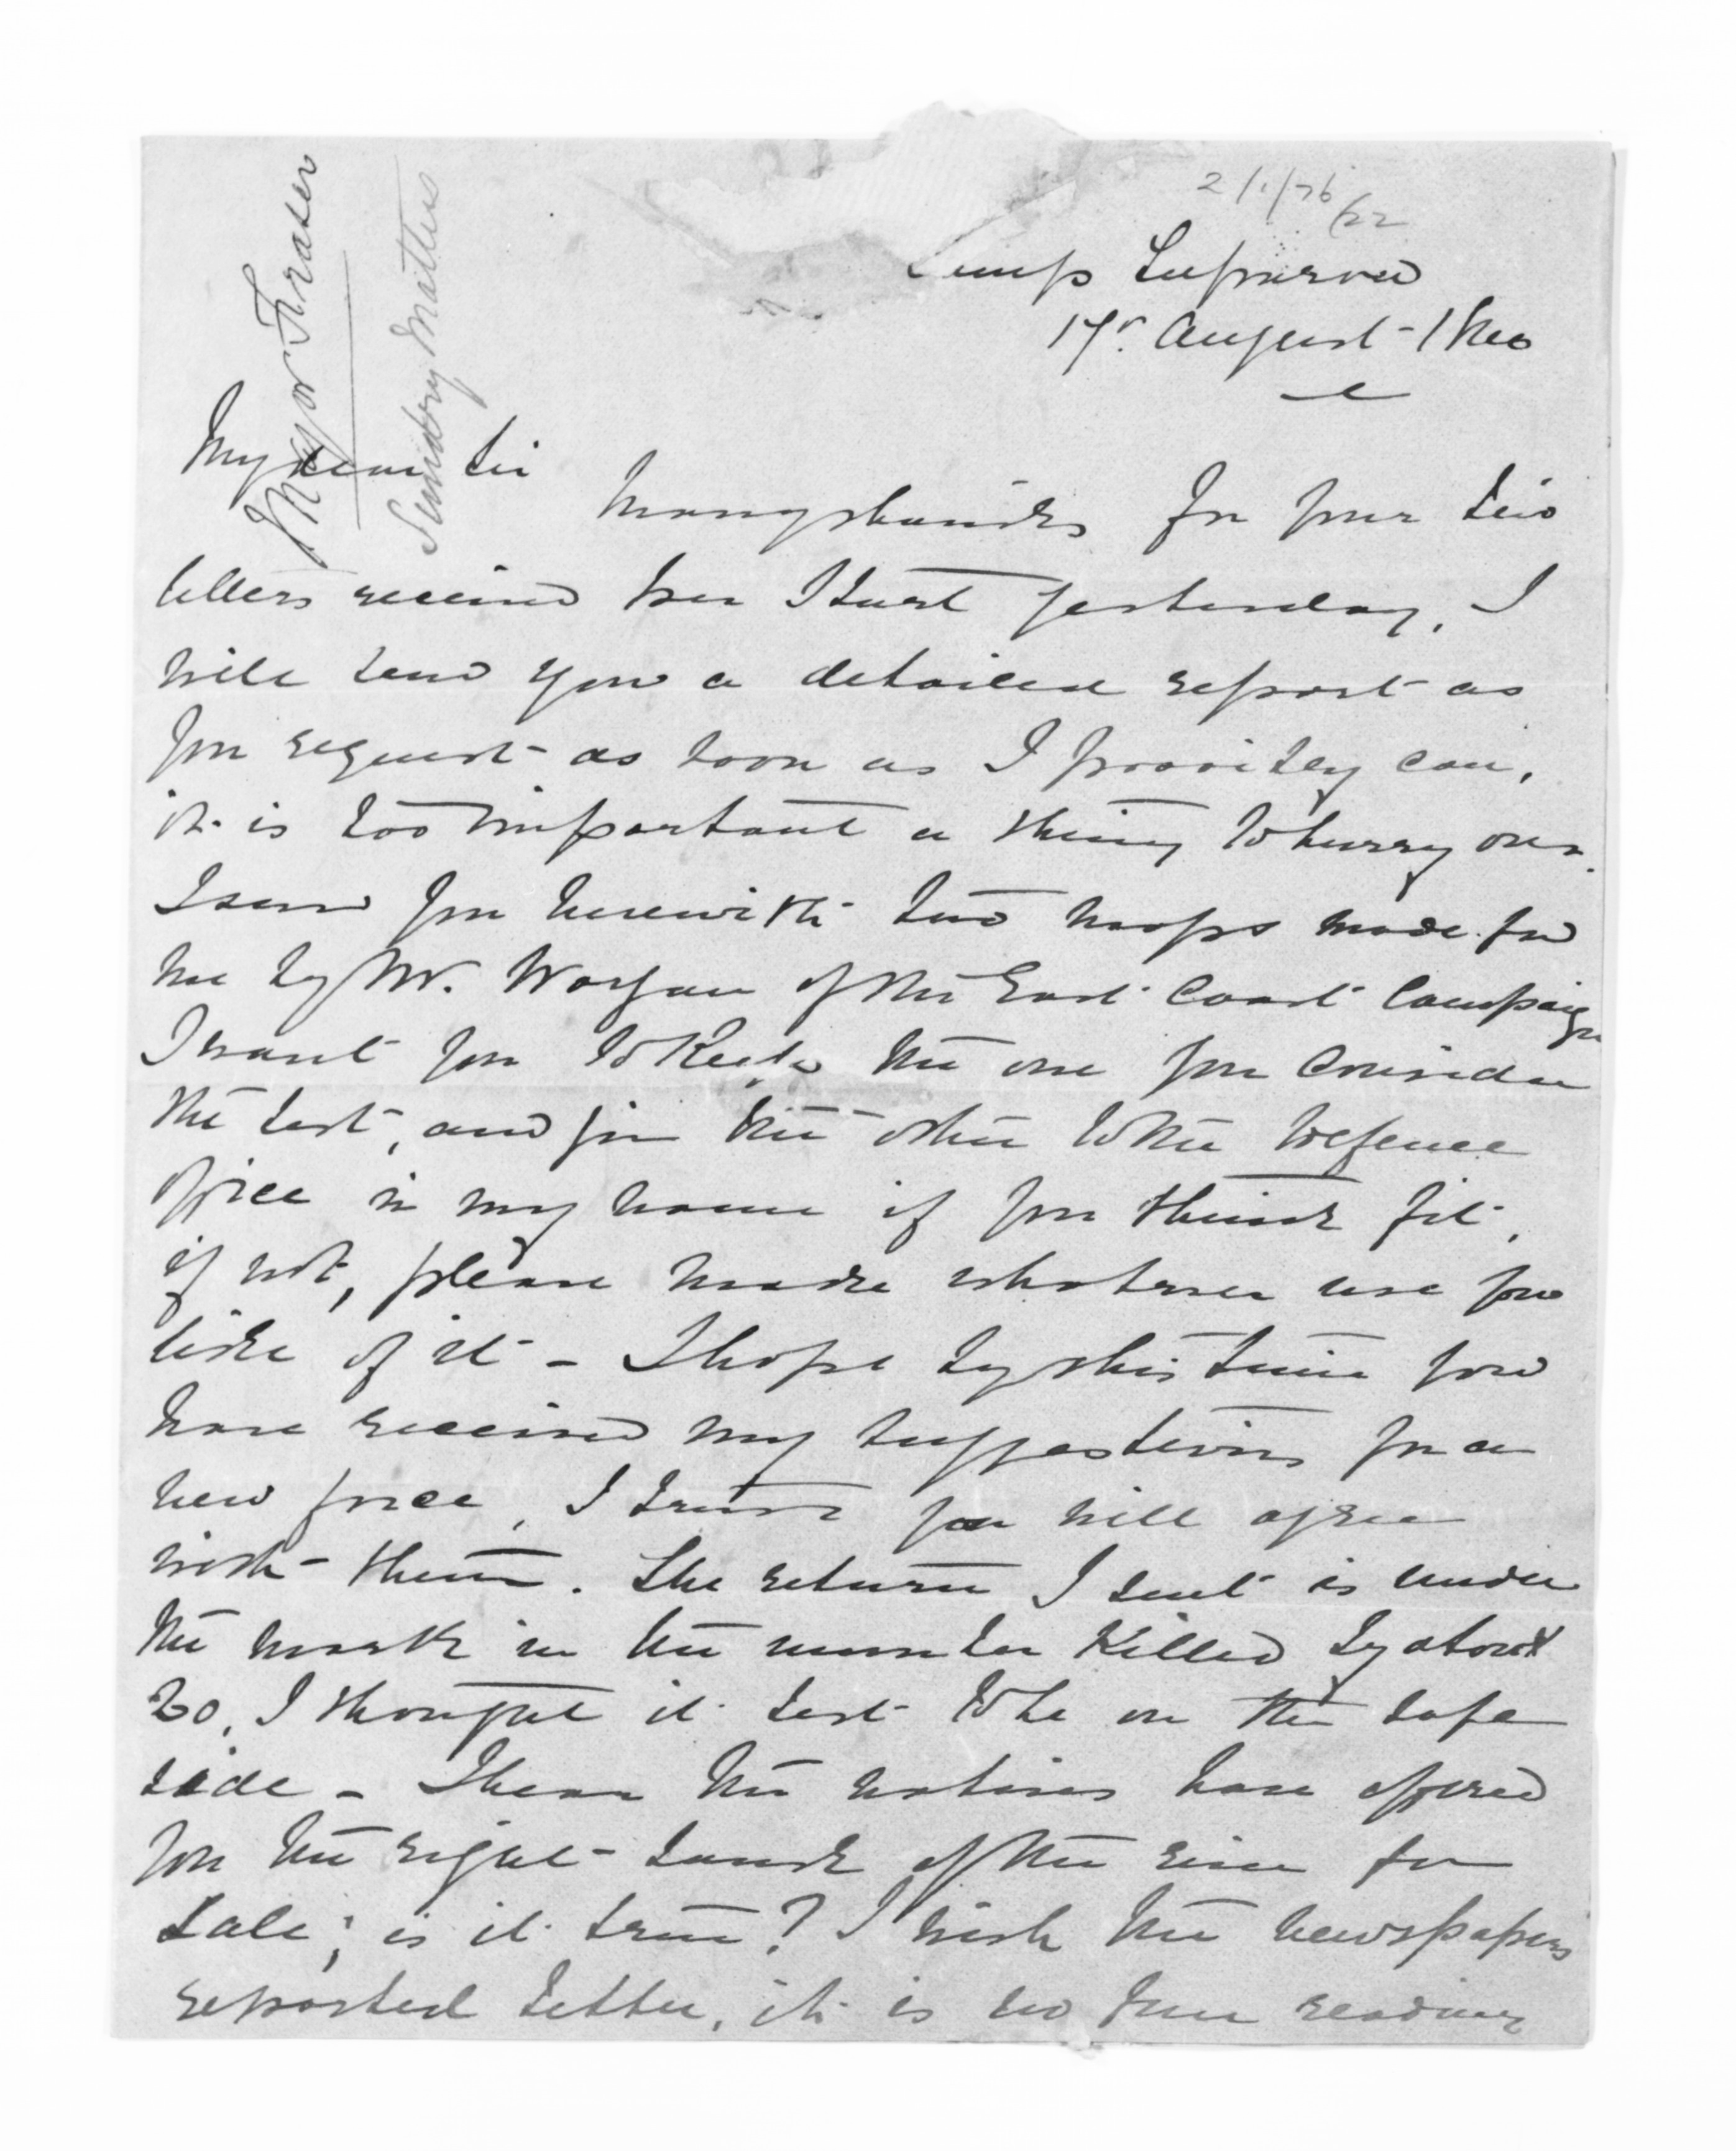 Major Fraser
Sundry Matters
2/1/76/22
Camp
17th August
My dear Sir
Many thanks for your two
letters received per Sturt yesterday, I
will send you a detailed report as
you request as soon as I possibly can,
it is too important a thing to hurry over.
I send you herewith two maps made for
me by Mr. Worgan of the East Coast Campaign
I want you to keep the one you consider
the best, and give the other to the Defence
Office in my name if you think fit,
if not, please make whatever use you
like of it - I hope by this time you
have received my suggestions for a
new force, I trust you will agree
with them. The return I sent is under
the mark in the number killed by about
20, I thought it best to be on the safe
side - I hear the natives have offered
you the right bank of the river for
sale; is it true? I wish the newspapers
reported better, it is no fun reading